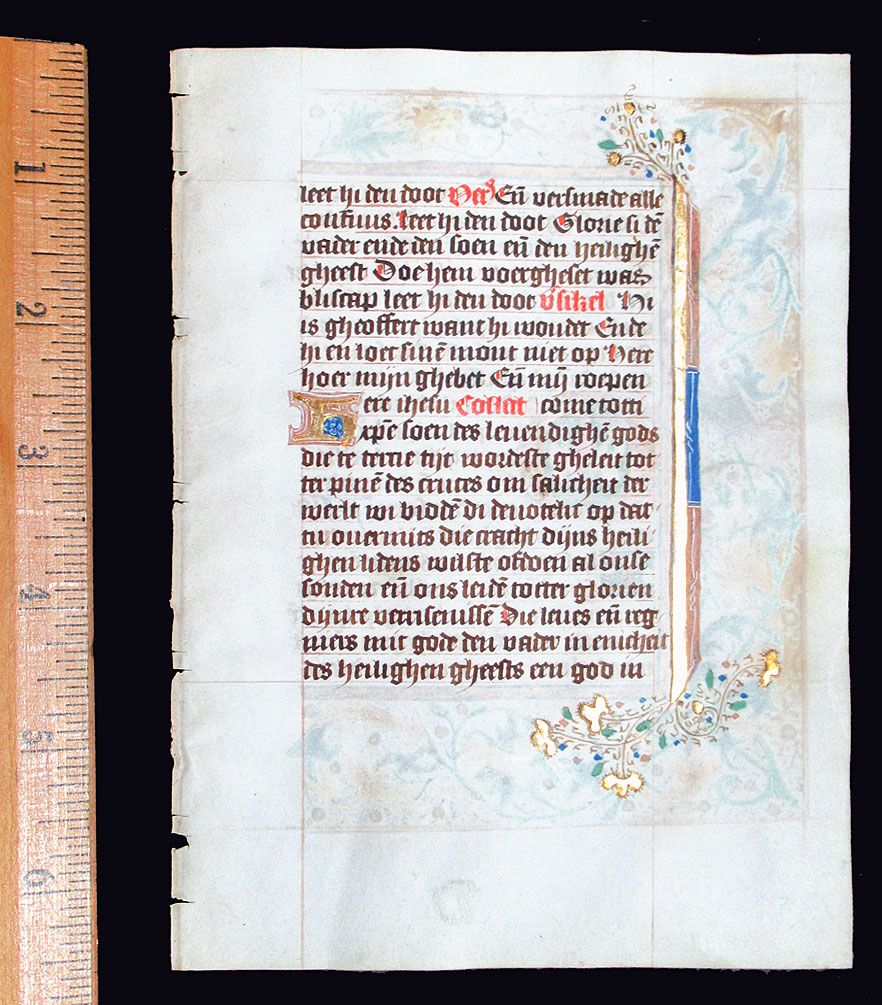 leet hi den doot Vers̃ Eñ versmade alle
confuus. leet hi den doot Glorie si dẽ
vader ende den soen eñ den heilighẽ
gheest Doe hem voergheset was
bliscap leet hi den doot v̾sikel Hi
is gheoffert want hi woudet Ende
hi en loet sinẽ mont niet op Here
hoer mijn ghebet Eñ mij roepen
Here ihesu Collect come totti
xp̃e soen des leuendighẽ gods
die te tertie tijt wordeste gheleit tot
ter pinẽ des cruces om salicheit der
werlt wi biddẽ di deuotelic op dat
tu ouermits die cracht dijns heili
ghen lidens wilste ofdoen al onse
sonden eñ ons leidẽ totter glorien
dijnre verrisenissẽ Die leues eñ reg
niers mit gode den vader in enicheit
des heilighen gheests een god in
1
2
3
4
5
6